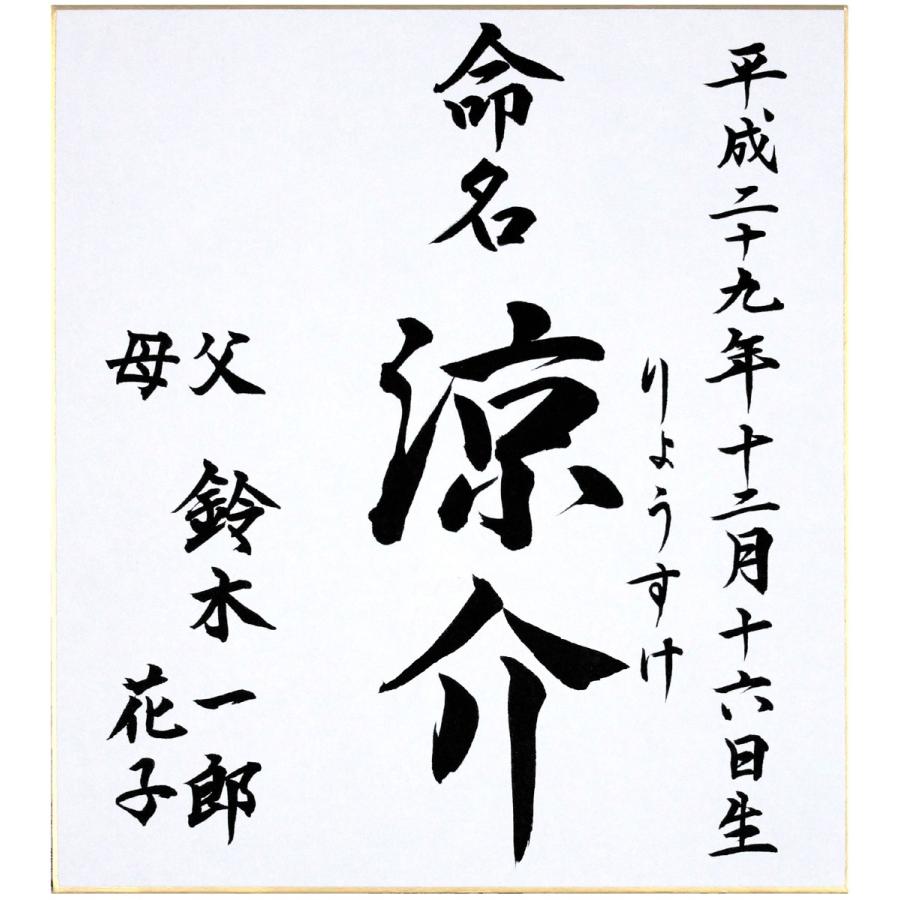 平成二十九年十二月十六日生
りょうすけ
命名 涼介
父 鈴木 一郎
母 花子